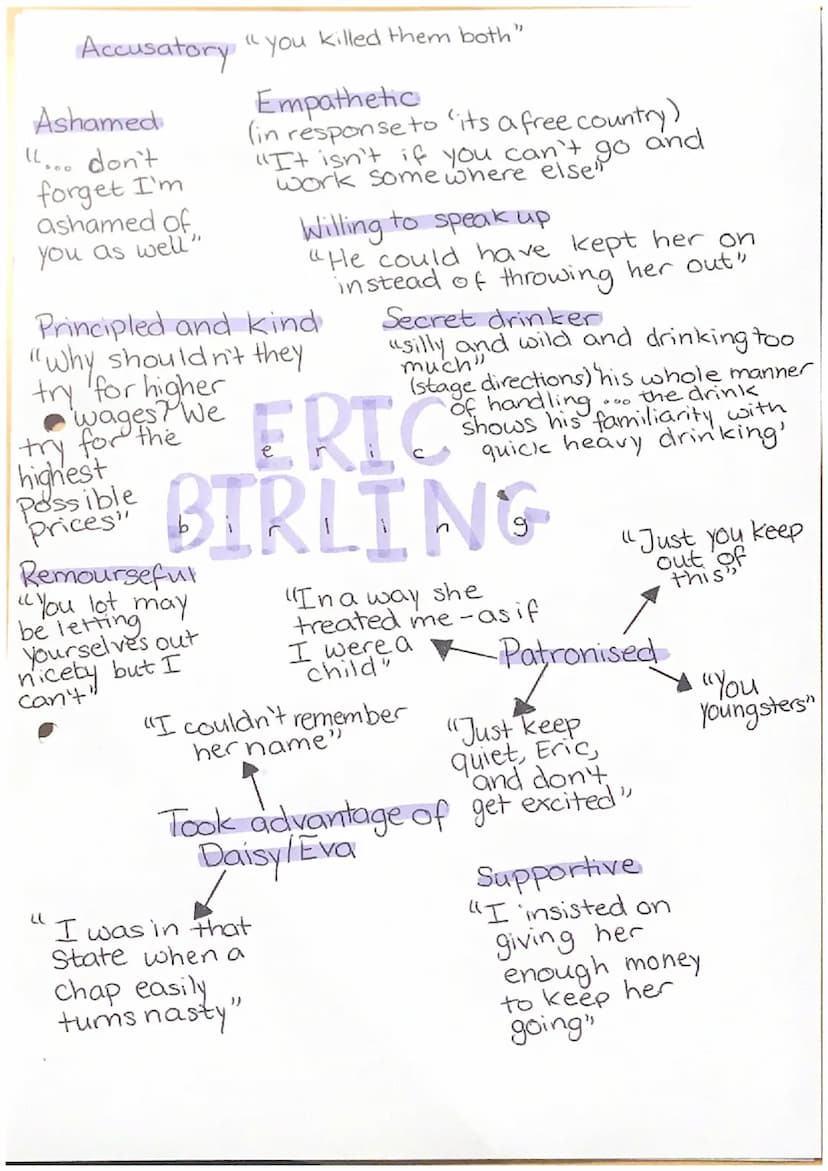 Accusatory "you killed them both"
Ashamed
"... don't
forget I'm
ashamed of
you as well"
Empathetic
(in response to 'its a free country)
"It isn't if you can't go and
work somewhere else"
Willing to speak up
"He could have kept her on
instead of throwing her out"
Principled and kind
"Why shouldn't they
try for higher
wages? We
try for the
highest
possible
prices"
Secret drinker
"silly and wild and drinking too
much"
(stage directions) 'his whole manner
of handling ... the drink
shows his familiarity with
quick heavy drinking'
ERIC
eric
BIRLING
birling
Remourseful
"You lot may
be letting
yourselves out
nicely but I
can't"
"In a way she
treated me - as if
I were a
child"
Patronised
"Just you keep
out of
this"
"You
youngsters"
"Just keep
quiet, Eric,
and don't
get excited"
"I couldn't remember
her name"
Took advantage of
Daisy/Eva
"I was in that
state when a
chap easily
turns nasty"
Supportive
"I insisted on
giving her
enough money
to keep her
going"